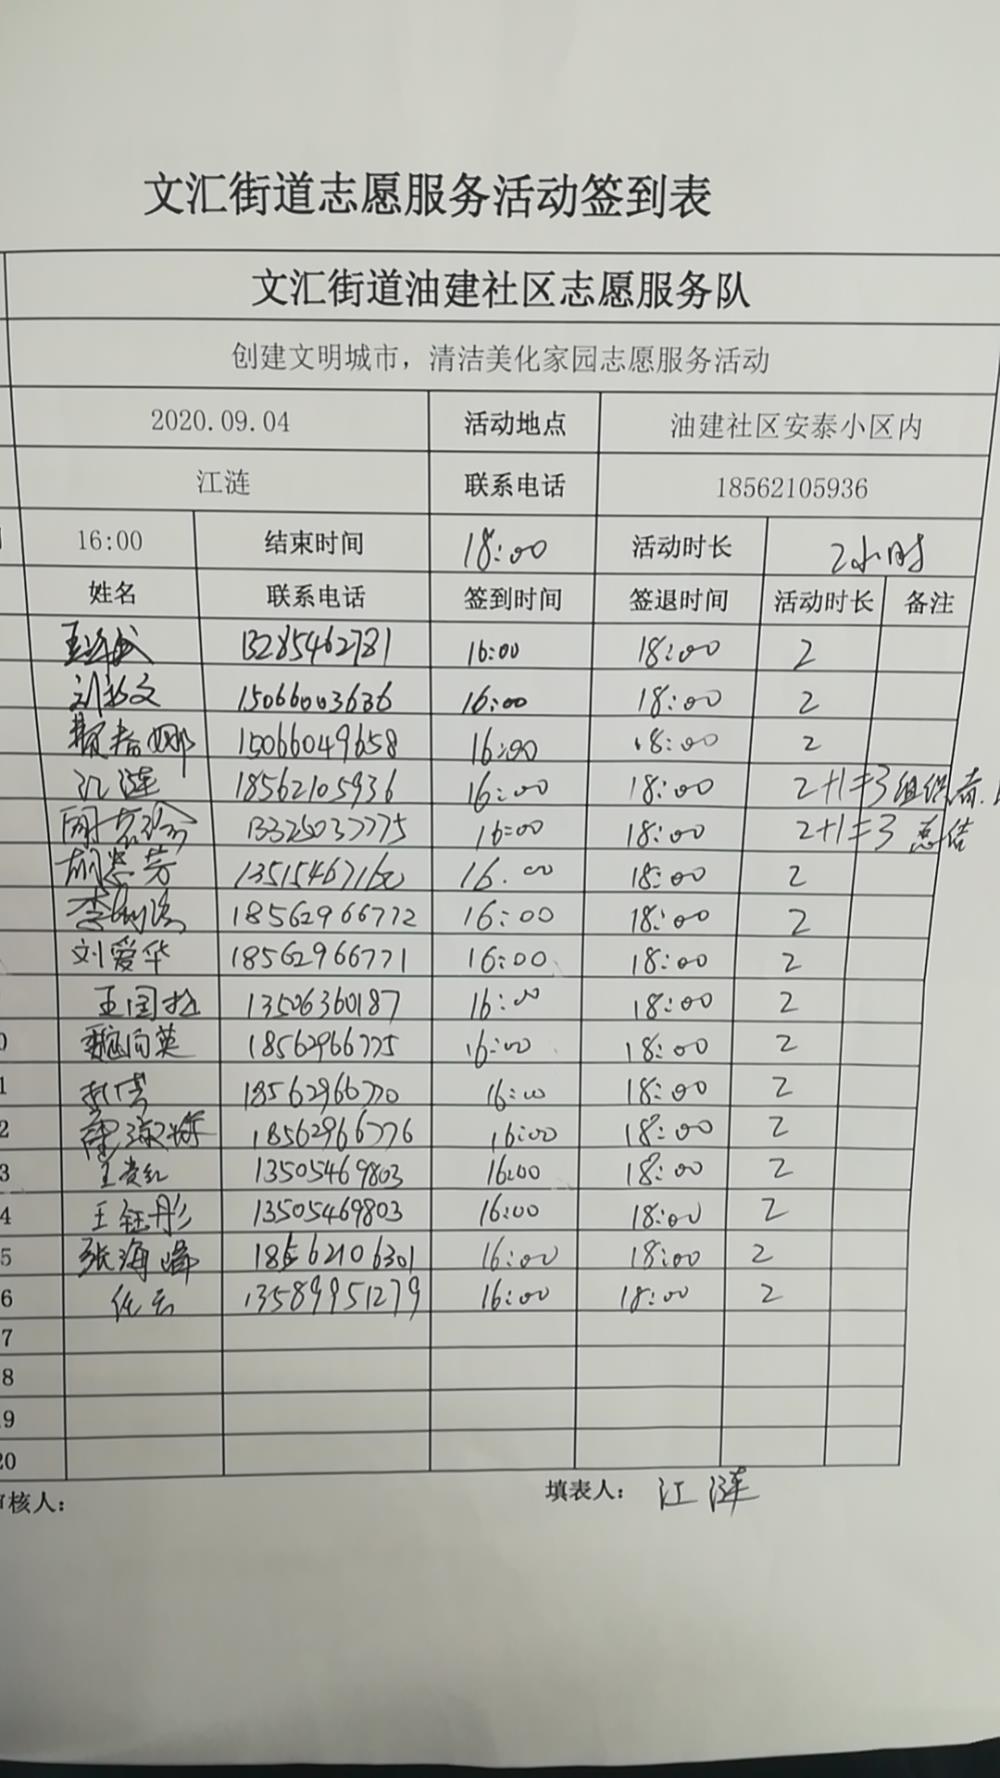 文汇街道志愿服务活动签到表
文汇街道油建社区志愿服务队
创建文明城市，清洁美化家园志愿服务活动
2020.09.04 活动地点 油建社区安泰小区内
江涟 联系电话 18562105936
16:00 结束时间 18:00 活动时长 2小时
姓名 联系电话 签到时间 签退时间 活动时长 备注
13285462781 16:00 18:00 2
15066003636 16:00 18:00 2
15066049658 16:00 18:00 2
江涟 18562105936 16:00 18:00 2+1=3 组织者.
13325037775 16:00 18:00 2+1=3 总结
16:00 18:00 2
18562966772 16:00 18:00 2
刘爱华 18562966771 16:00 18:00 2
王国 13506360187 16:00 18:00 2
0 魏向英 18562966775 16:00 18:00 2
1 18562966770 16:00 18:00 2
2 18562966776 16:00 18:00 2
3 13505469803 16:00 18:00 2
4 王钰彤 13505469803 16:00 18:00 2
5 张海峰 18562106301 16:00 18:00 2
6 任云 13589951279 16:00 18:00 2
7
8
19
20
审核人： 填表人： 江涟